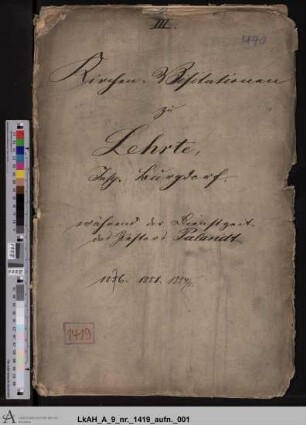 III.
1419
Kirchen-Visitationen
zu
Lehrte,
Insp. Burgdorf.
während der Dienstzeit
des Pastors Palandt
1876. 1881.
1419
LkAH_A_9_nr._1419_aufn._001